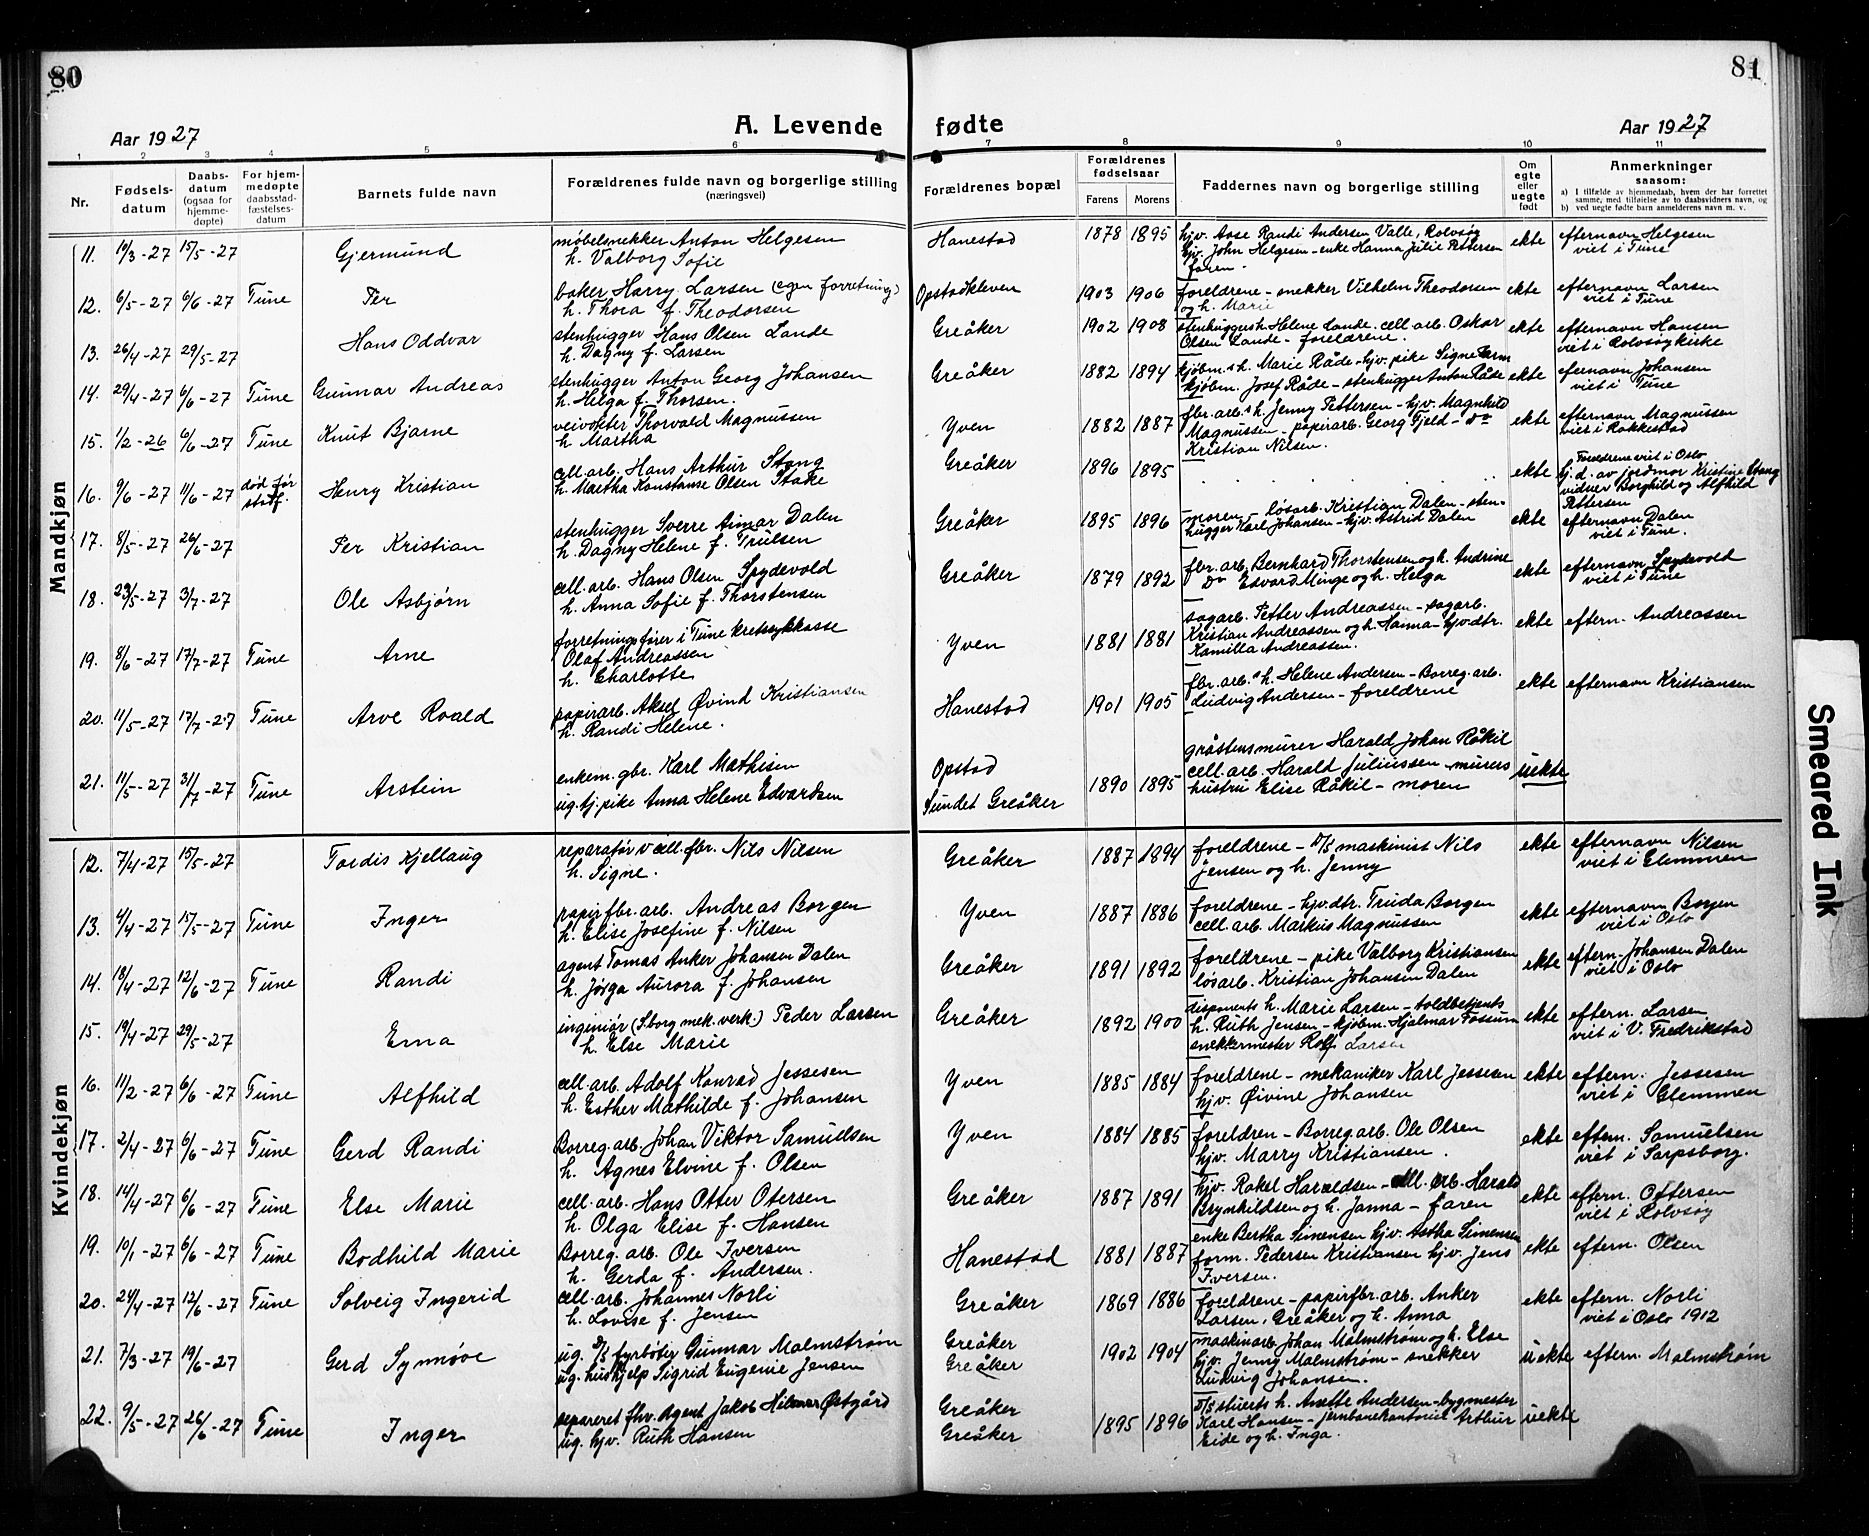 80
81
Aar 1927
A. Levende
fødte
Aar 1927
1 2 3 4 5 6 7 8 9 10 11
Nr.
Fødsels-
datum
Daabs-
datum
(ogsaa for
hjemme-
døpte)
For hjem-
medøpte
daabsstad-
fæstelses-
datum
Barnets fulde navn
Forældrenes fulde navn og borgerlige stilling
(næringsvei)
Forældrenes bopæl
Forældrenes
fødselsaar
Farens
Morens
Faddernes navn og borgerlige stilling
Om
egte
eller
uegte
født
Anmerkninger
saasom:
a) I tilfælde av hjemmedaab, hvem der har forrettet
samme, med tilføielse av to daabsvidners navn, og
b) ved uegte født barn anmelderens navn m. v.
Mandkjøn
11. 19/3-27 15/5-27 Gjermund
møbelsnekker Anton Helgesen
h. Valborg Sofie
Hanestad 1878 1895
hjv. Aase Randi Andersen Valle, Rolvsøy
hjv. John Helgesen - enke Hanna Julie Pettersen
faren -
ekte
efternavn Helgesen
viet i Tune
12. 6/5-27 6/6-27 Tune Per
baker Harry Larsen (egen forretning)
h. Thora f. Theodorsen
Opstadkleven 1903 1906
foreldrene - snekker Vilhelm Theodorsen
og h. Marie
ekte
efternavn Larsen
viet i Tune
13. 26/4-27 29/5-27 Hans Oddvar
stenhugger Hans Olsen Lande
h. Dagny f. Larsen
Greåker 1902 1908
stenhuggersh. Helene Lande. cell. arb. Oskar
Olsen Lande - foreldrene.
ekte
efternavn Hansen
viet i Rolvsøy kirke
14. 29/4-27 6/6-27 Tune Gunnar Andreas
stenhugger Anton Georg Johansen
h. Helga f. Thorsen.
Greåker 1882 1894
kjøbm.s h. Marie Råde - hjv. pike Signe
kjøbm. Josef Råde - stenhugger Anton Råde
ekte
efernavn Johansen
viet i Tune
15. 1/2-26 6/6-27 Tune Knut Bjarne
veivokter Thorvald Magnussen
h. Martha
Yven 1882 1887
fbr. arb.s h. Jenny Pettersen - hjv. Magnhild
Magnussen - papirarb. Georg Fjeld - do
Kristian Nilsen.
ekte
efternavn Magnussen
viet i Rakkestad
16. 9/6-27 11/6-27 død før
stadf. Henry Kristian
cell. arb. Hans Arthur Stang
h. Martha Konstanse Olsen Stake
Greåker 1896 1895
ekte
Foreldrene viet i Oslo
hj. d. av jordmor Kristine Stang
vidner Borghild og Alfhild
Pettersen
17. 8/5-27 26/6-27 Per Kristian
stenhugger Sverre Aimar Dalen
h. Dagny Helene f. Truelsen
Greåker 1895 1896
moren - løsarb. Kristian Dalen - sten-
hugger Karl Johansen - hjv. Astrid Dalen
ekte
efternavn Dalen
viet i Tune.
18. 23/5-27 3/7-27 Ole Asbjørn
cell. arb. Hans Olsen Spydevold
h. Anna Sofie f. Thorstensen
Greåker 1879 1892
fbr. arb. Bernhard Thorstensen og h. Andrine
Do Edvard Minge og h. Helga
ekte
efternavn Spydevold
viet i Tune
19. 8/6-27 17/7-27 Tune Arne
forretningsfører i Tune kretssykkasse
Olaf Andreassen
h. Charlotte
Yven 1881 1881
sagarb. Petter Andreassen - sagarb.
Kristian Andreassen og h. Hanna - hjv. dtr.
Kamilla Andreassen.
ekte
eftern. Andreassen
20. 11/5-27 17/7-27 Tune Arve Roald
papirarb. Aksel Øvind Kristiansen
h. Randi Helene.
Hanestad 1901 1905
fbr. arb.s h. Helene Andersen - Borreg. arb.
Ludvig Andersen - foreldrene
ekte
efternavn Kristiansen
21. 11/5-27 31/7-27 Tune Arstein
enkem. gbr. Karl Mathisen
ug. tj. pike Anna Helene Edvardsen
Opstad
Sundet Greåker 1890 1895
gråstensmurer Harald Johan Råkil
cell. arb. Harald Juliussen - murers
hustru Elise Råkil - moren
uekte
Kvindekjøn
12. 7/4-27 15/5-27 Tordis Kjellaug
reparatør v cell. fbr. Nils Nilsen
h. Signe.
Greåker 1887 1894
foreldrene - D/S maskinist Nils
Jensen og h. Jenny
ekte
efternavn Nilsen
viet i Glemmen
13. 4/4-27 15/5-27 Tune Inger
papirfbr. arb. Andreas Borgen
h. Elise Josefine f. Nilsen
Yven 1887 1886
foreldrene - hjv. dtr. Truida Borgen
cell. arb. Markus Magnussen
ekte
efternavn Borgen
viet i Oslo
14. 18/4-27 12/6-27 Tune Randi
agent Tomas Anker Johansen Dalen
h. Jørga Aurora f. Johansen
Greåker 1891 1892
foreldrene - pike Valborg Kristiansen
løsarb. Kristian Johansen Dalen
ekte
eftern. Johansen Dalen
viet i Oslo
15. 19/4-27 29/5-27 Erna
ingeniør (S.borg mek. verk.) Peder Larsen
h. Else Marie
Greåker 1892 1900
disponents h. Marie Larsen - toldbetjents
h. Ruth Jensen - kjøbm. Hjalmar Fossum
snekkermester Rolf Larsen
ekte
eftern. Larsen
viet i V. Fredrikstad
16. 11/2-27 6/6-27 Tune Alfhild
cell. arb. Adolf Konrad Jessesen
h. Esther Mathilde f. Johansen
Yven 1885 1884
foreldrene - mekaniker Karl Jessesen
hjv. Øivine Johansen
ekte
eftern. Jessesen
viet i Glemmen
17. 2/4-27 6/6-27 Tune Gerd Randi
Borreg. arb. Johan Viktor Samuelsen
h. Agnes Elvine f. Olsen
Yven 1884 1885
foreldren - Borreg. arb. Ole Olsen
hjv. Marry Kristiansen.
ekte
eftern. Samuelsen
viet i Sarpsborg.
18. 14/4-27 6/6-27 Tune Else Marie
cell. arb. Hans Otter Otersen
h. Olga Elise f. Hansen
Greåker 1887 1891
hjv. Rakel Haraldsen - cell. arb. Harald
Brynhildsen og h. Janna - faren
ekte
eftern. Ottersen
viet i Rolvsøy
19. 10/1-27 6/6-27 Tune Bodhild Marie
Borreg. arb. Ole Iversen
h. Gerda f. Andersen.
Hanestad 1881 1887
enke Bertha Simensen hjv. Astha Simensen
form. Pedersen Kristiansen hjv. Jens
Iversen.
ekte
eftern. Olsen
20. 24/4-27 12/6-27 Tune Solveig Ingerid
cell. arb. Johannes Norli
h. Lovise f. Jensen
Greåker 1869 1886
foreldrene - papirfbr. arb. Anker
Larsen, Greåker og h. Anna
ekte
eftern. Norli
viet i Oslo 1912
21. 7/3-27 19/6-27 Gerd Synnøve
ug. D/S fyrbøter Gunnar Malmstrøm
ug. hushjelp Sigrid Eugenie Jensen
Greåker
Greåker 1902 1904
maskinarb. Johan Malmstrøm og h. Else
hjv. Jenny Malmstrøm - snekker
Ludvig Johansen.
uekte
eftern. Malmstrøm
22. 9/5-27 26/6-27 Tune Inger
separeret fhv. Agent Jakob Hilmar Østgård
ug. hjv. Ruth Hansen
Greåker
Greåker 1895 1896
D/S stuerts h. Anette Andersen - bygmester
Karl Hansen - jernbanekontorist Arthur
Eide og h. Inga.
uekte
Smeared Ink